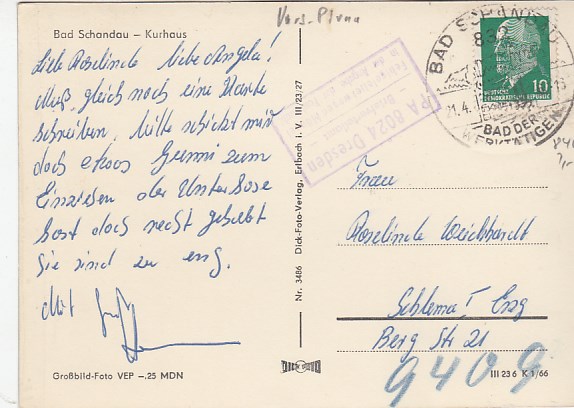 Vors. Pirna
Bad Schandau – Kurhaus
Liebe Roselinde liebe Angela!
Muß gleich noch eine Karte
schreiben. Bitte schickt mir
doch etwas Gummi zum
Einziehen der Unterhose
sonst doch recht geliebt
sie sind zu eng.
Mit
BAD SCHANDAU
BAD DER
WERKTÄTIGEN
10
DEUTSCHE
DEMOKRATISCHE REPUBLIK
PA 8024 Dresden
Nr. 3486 Dick-Foto-Verlag, Erlbach i. V. III/23/27
Frau
Roselinde Weichhardt
Schlema I Erzg
Berg Str 21
9409
Großbild-Foto VEP –.25 MDN
III 23 6 K 1/66